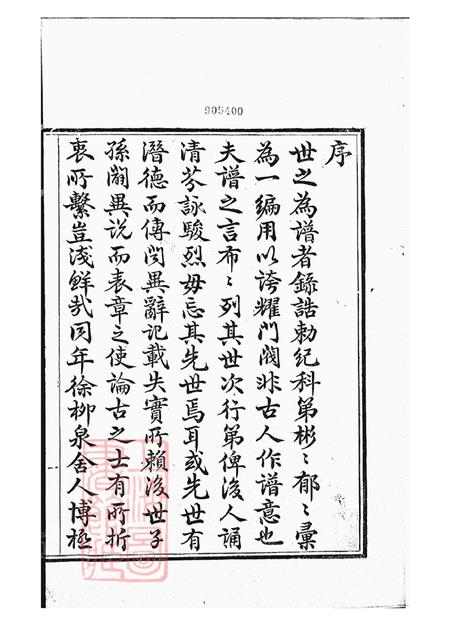 905400
序
世之為譜者錄誥勅紀科第彬〻郁〻彙
為一編用以誇耀門閥非古人作譜意也
夫譜之言布〻列其世次行第俾後人誦
清芬詠駿烈毋忘其先世焉耳或先世有
潛德而傳聞異辭記載失實所賴後世子
孫闢異說而表章之使論古之士有所折
衷所繫豈淺鮮㢤同年徐柳泉舍人博極